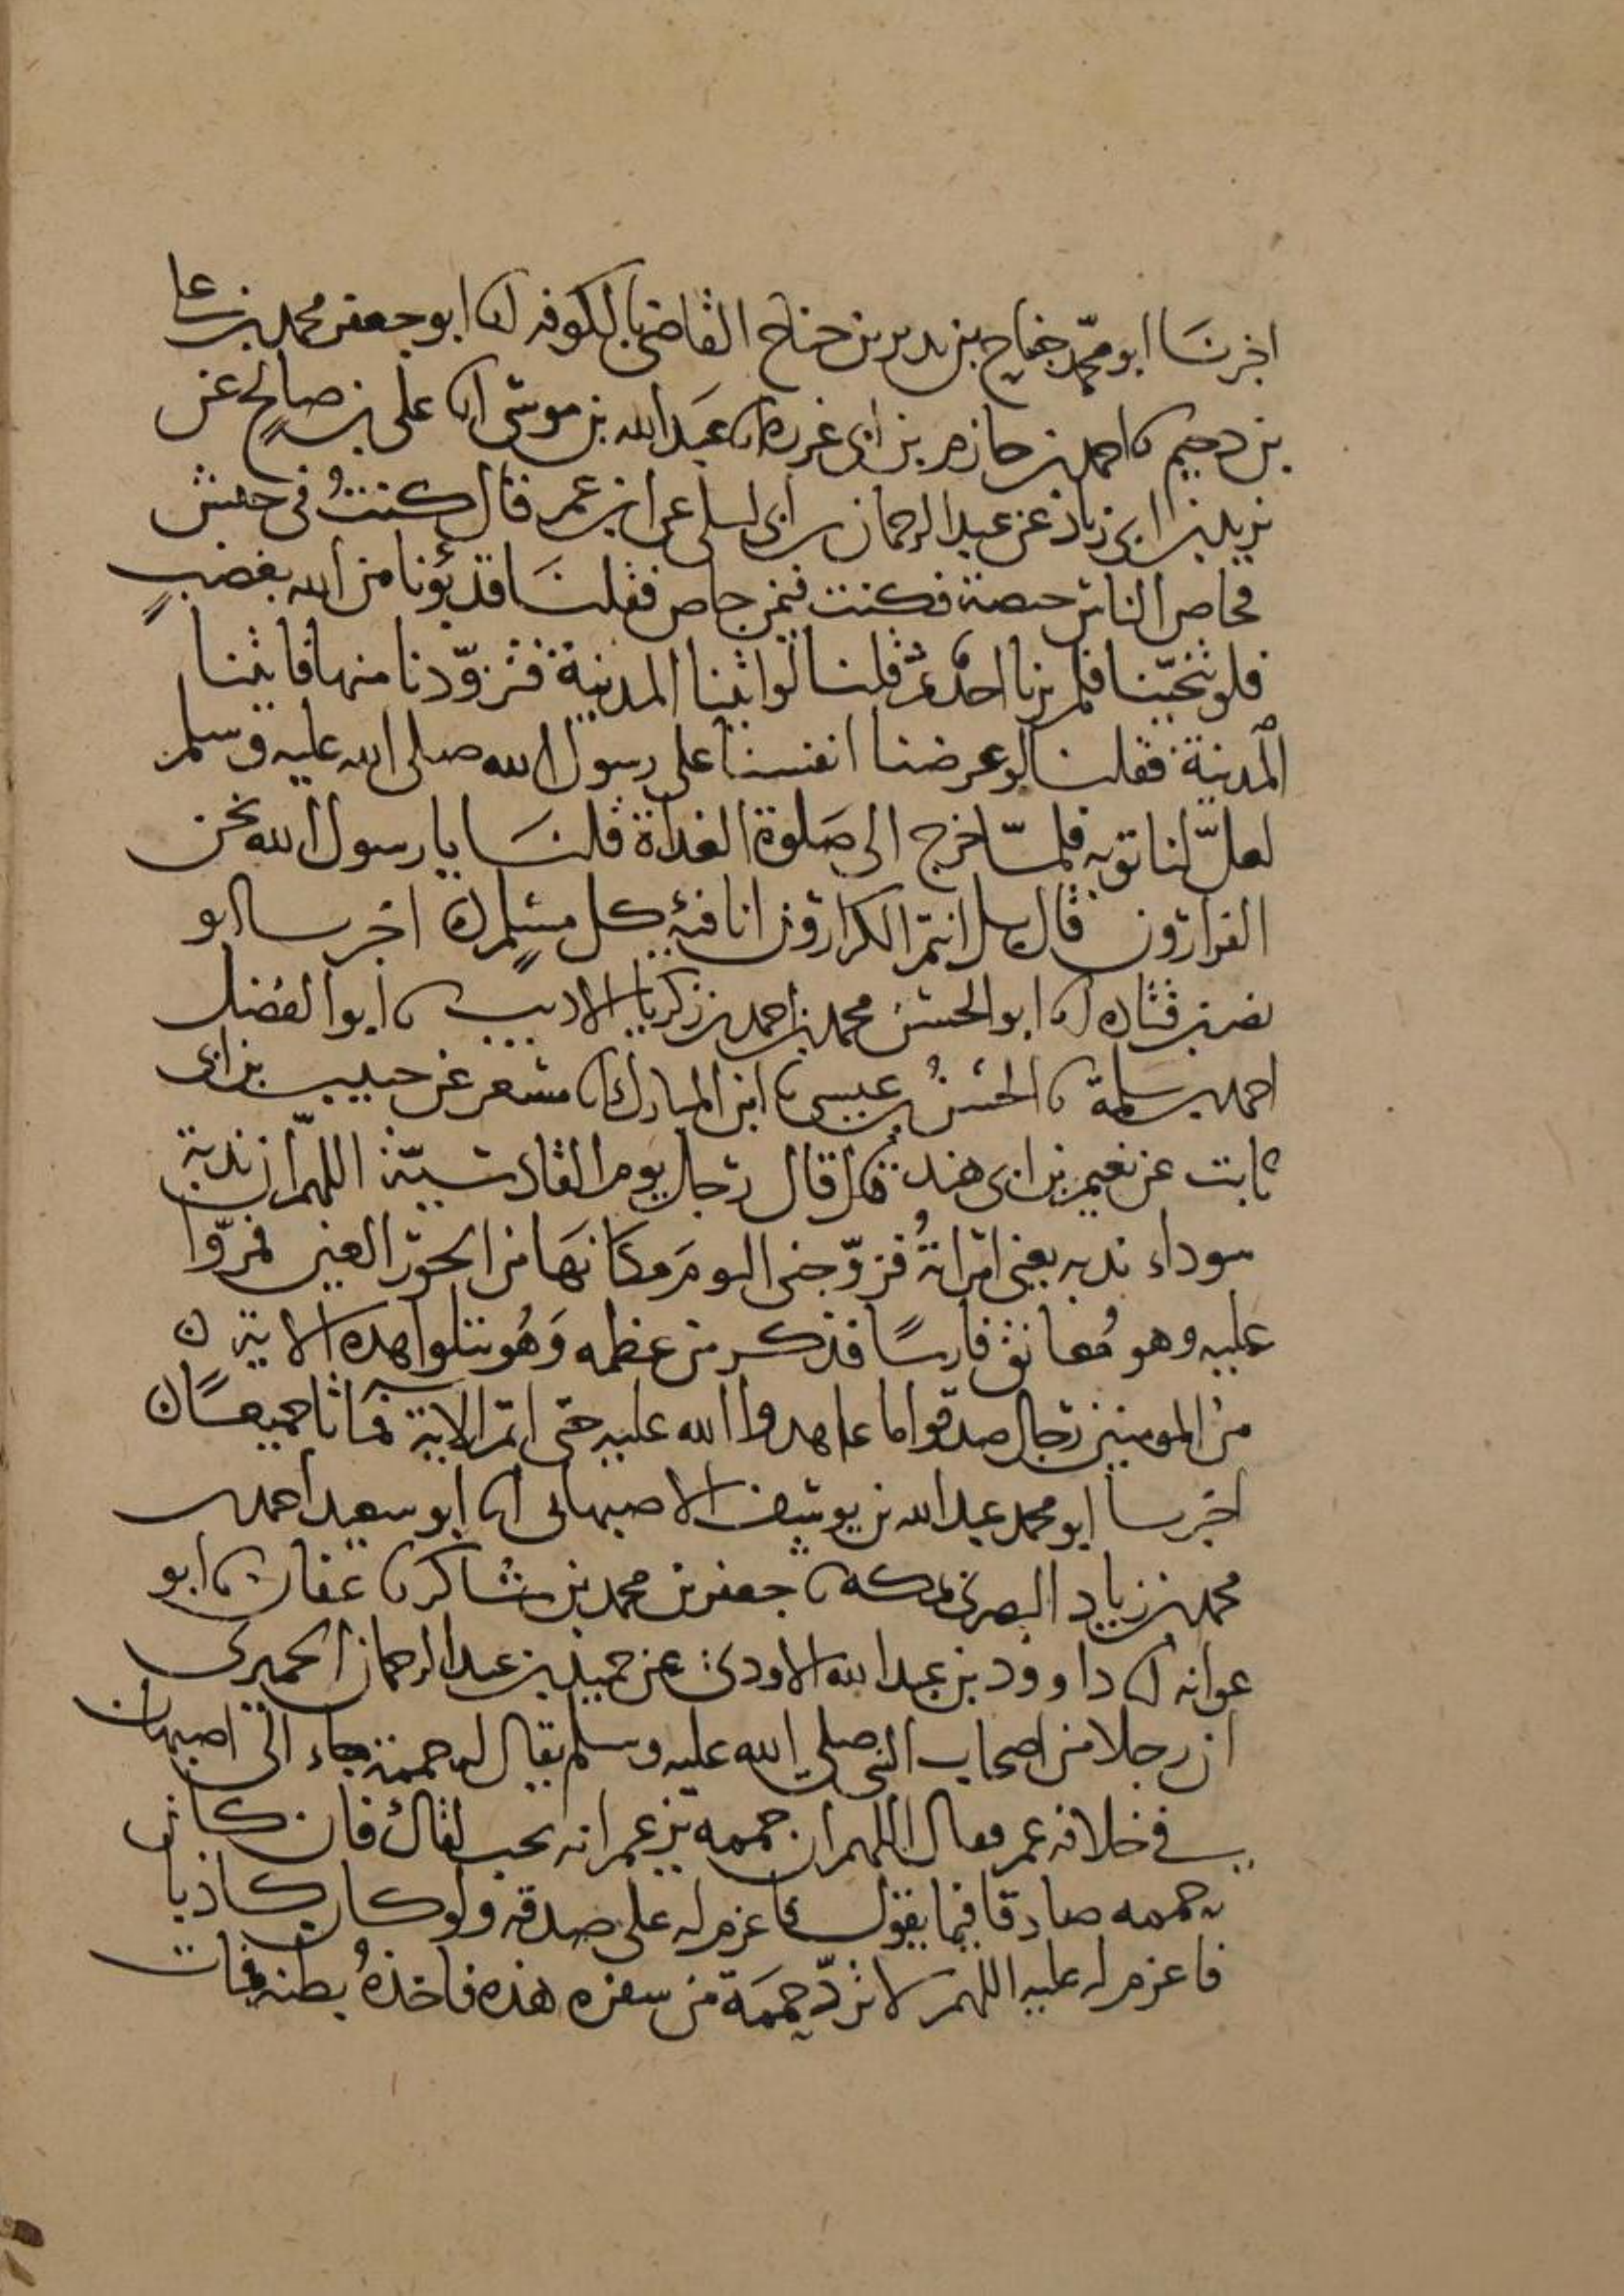 اخبرنَا ابو محمّد جناح بن نذير بن جناح القاضي بالكوفه انا ابو جعفر محمد بن علي
بن دحيم نا احمد بن حازم بن ابي غرزه انا عبَيد الله بن موسى انا علي بن صالح عن
يزيد بن ابي زياد عن عبد الرحمان بن ابي ليلى عن ابن عمر قال كنتُ في جيش
فحاص الناس حيصة فكنت فيمن حاص فقلنَا قد بُؤنا من الله بغضبٍ
فلو تنحّينا فلم يرنا احدٌ ثم قلنا لو اتينا المدينة فتزوّدنا منها فاتينا
المدينة فقلنا لو عرضنا انفسنا على رسول الله صلى الله عليه وسلم
لعلّ لنا توبه فلمّا خرج الى صَلوة الغداة قلنَا يا رسول الله نحن
الفرارون قال بل انتم الكرارون انا فئة كل مسلم ه اخبرنا ابو
نصر بن قتاده انا ابو الحسن محمد بن احمد بن زكريا الاديب نا ابو الفضل
احمد بن سلمة نا الحسنُ بن عيسى نا ابن المبارك نا مسعر عن حبيب بن ابي
ثابت عن نعيم بن ابي هند قال قال رجل يوم القادسيّة اللهمّ ان ندبة
سوداء بذيه يعني امراتهُ فزوّجني اليومَ مكانهَا من الحور العين فمرّوا
عليه وهو مُعانق فارسًا فذكر من عظمه وَهُو يتلوا هذه الاية ه
من المومنين رجال صدقوا ما عاهدوا الله عليه حتى اتم الاية فماتا جميعًا ه
اخبرنا ابو محمد عبد الله بن يوسف الاصبهاني انا ابو سعيد احمد بن
محمد بن زياد البصري بمكه نا جعفر بن محمد بن شاكر نا عفان نا ابو
عوانه انا داوود بن عبد الله الاودي عن حميد بن عبد الرحمان الحميري
ان رجلا من اصحاب النبي صلى الله عليه وسلم يقال له حممة جاء الى اصبهان
في خلافه عمر فقال اللهم ان حممه يزعم انه يحب لقاك فان كان
حممه صادقا فيما يقول فاعزم له على صدقه ولو كان كاذبا
فاعزم له عليه اللهم لا تردّ حممَة من سفره هذه فاخذهُ بطنه فمات